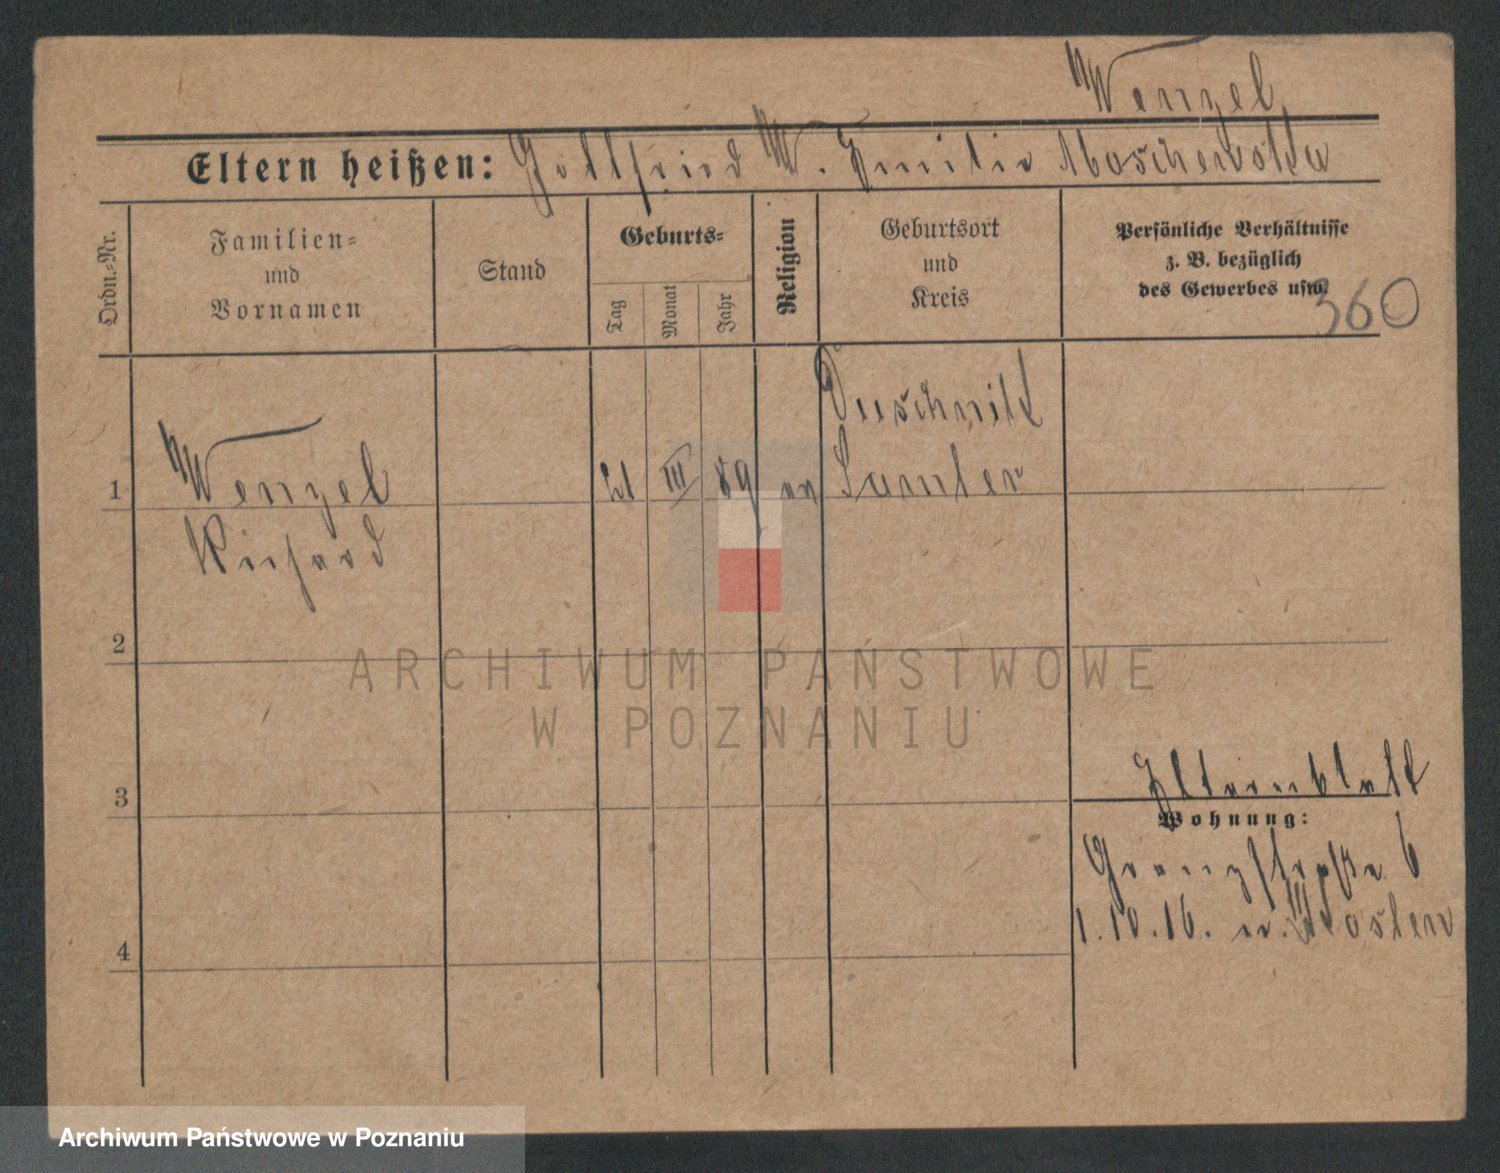 Wenzel
Eltern heißen: Gottfried W. Emilie
Ordn.=Nr.
Familien=
und
Vornamen
Stand
Geburts=
Tag
Monat
Jahr
Religion
Geburtsort
und
Kreis
Persönliche Verhältnisse
z. B. bezüglich
des Gewerbes usw.
360
1
Wenzel
Richard
III
89
ev
Duschnik
Samter
2
ARCHIWUM PAŃSTWOWE
W POZNANIU
3
Elternblatt
Wohnung:
Grenzstraße 6
1.10.16. n.
4
Archiwum Państwowe w Poznaniu